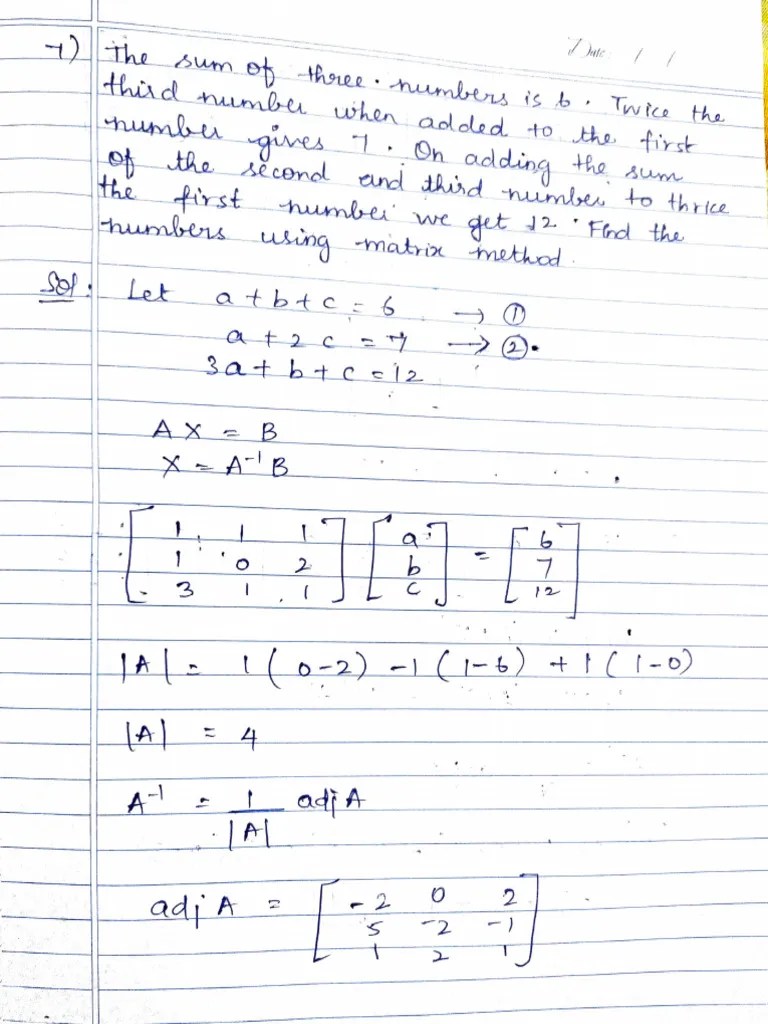 Date / /
7) The sum of three numbers is 6. Twice the
third number when added to the first
number gives 7. On adding the sum
of the second and third number to thrice
the first number we get 12. Find the
numbers using matrix method.
Sol: Let a + b + c = 6 → ①
a + 2c = 7 → ②
3a + b + c = 12
AX = B
X = A⁻¹B
[1 1 1] [a] = [6]
[1 0 2] [b] [7]
[3 1 1] [c] [12]
|A| = 1(0-2) -1(1-6) + 1(1-0)
|A| = 4
A⁻¹ = 1/|A| adj A
adj A = [-2 0 2]
[5 -2 -1]
[1 2 1]